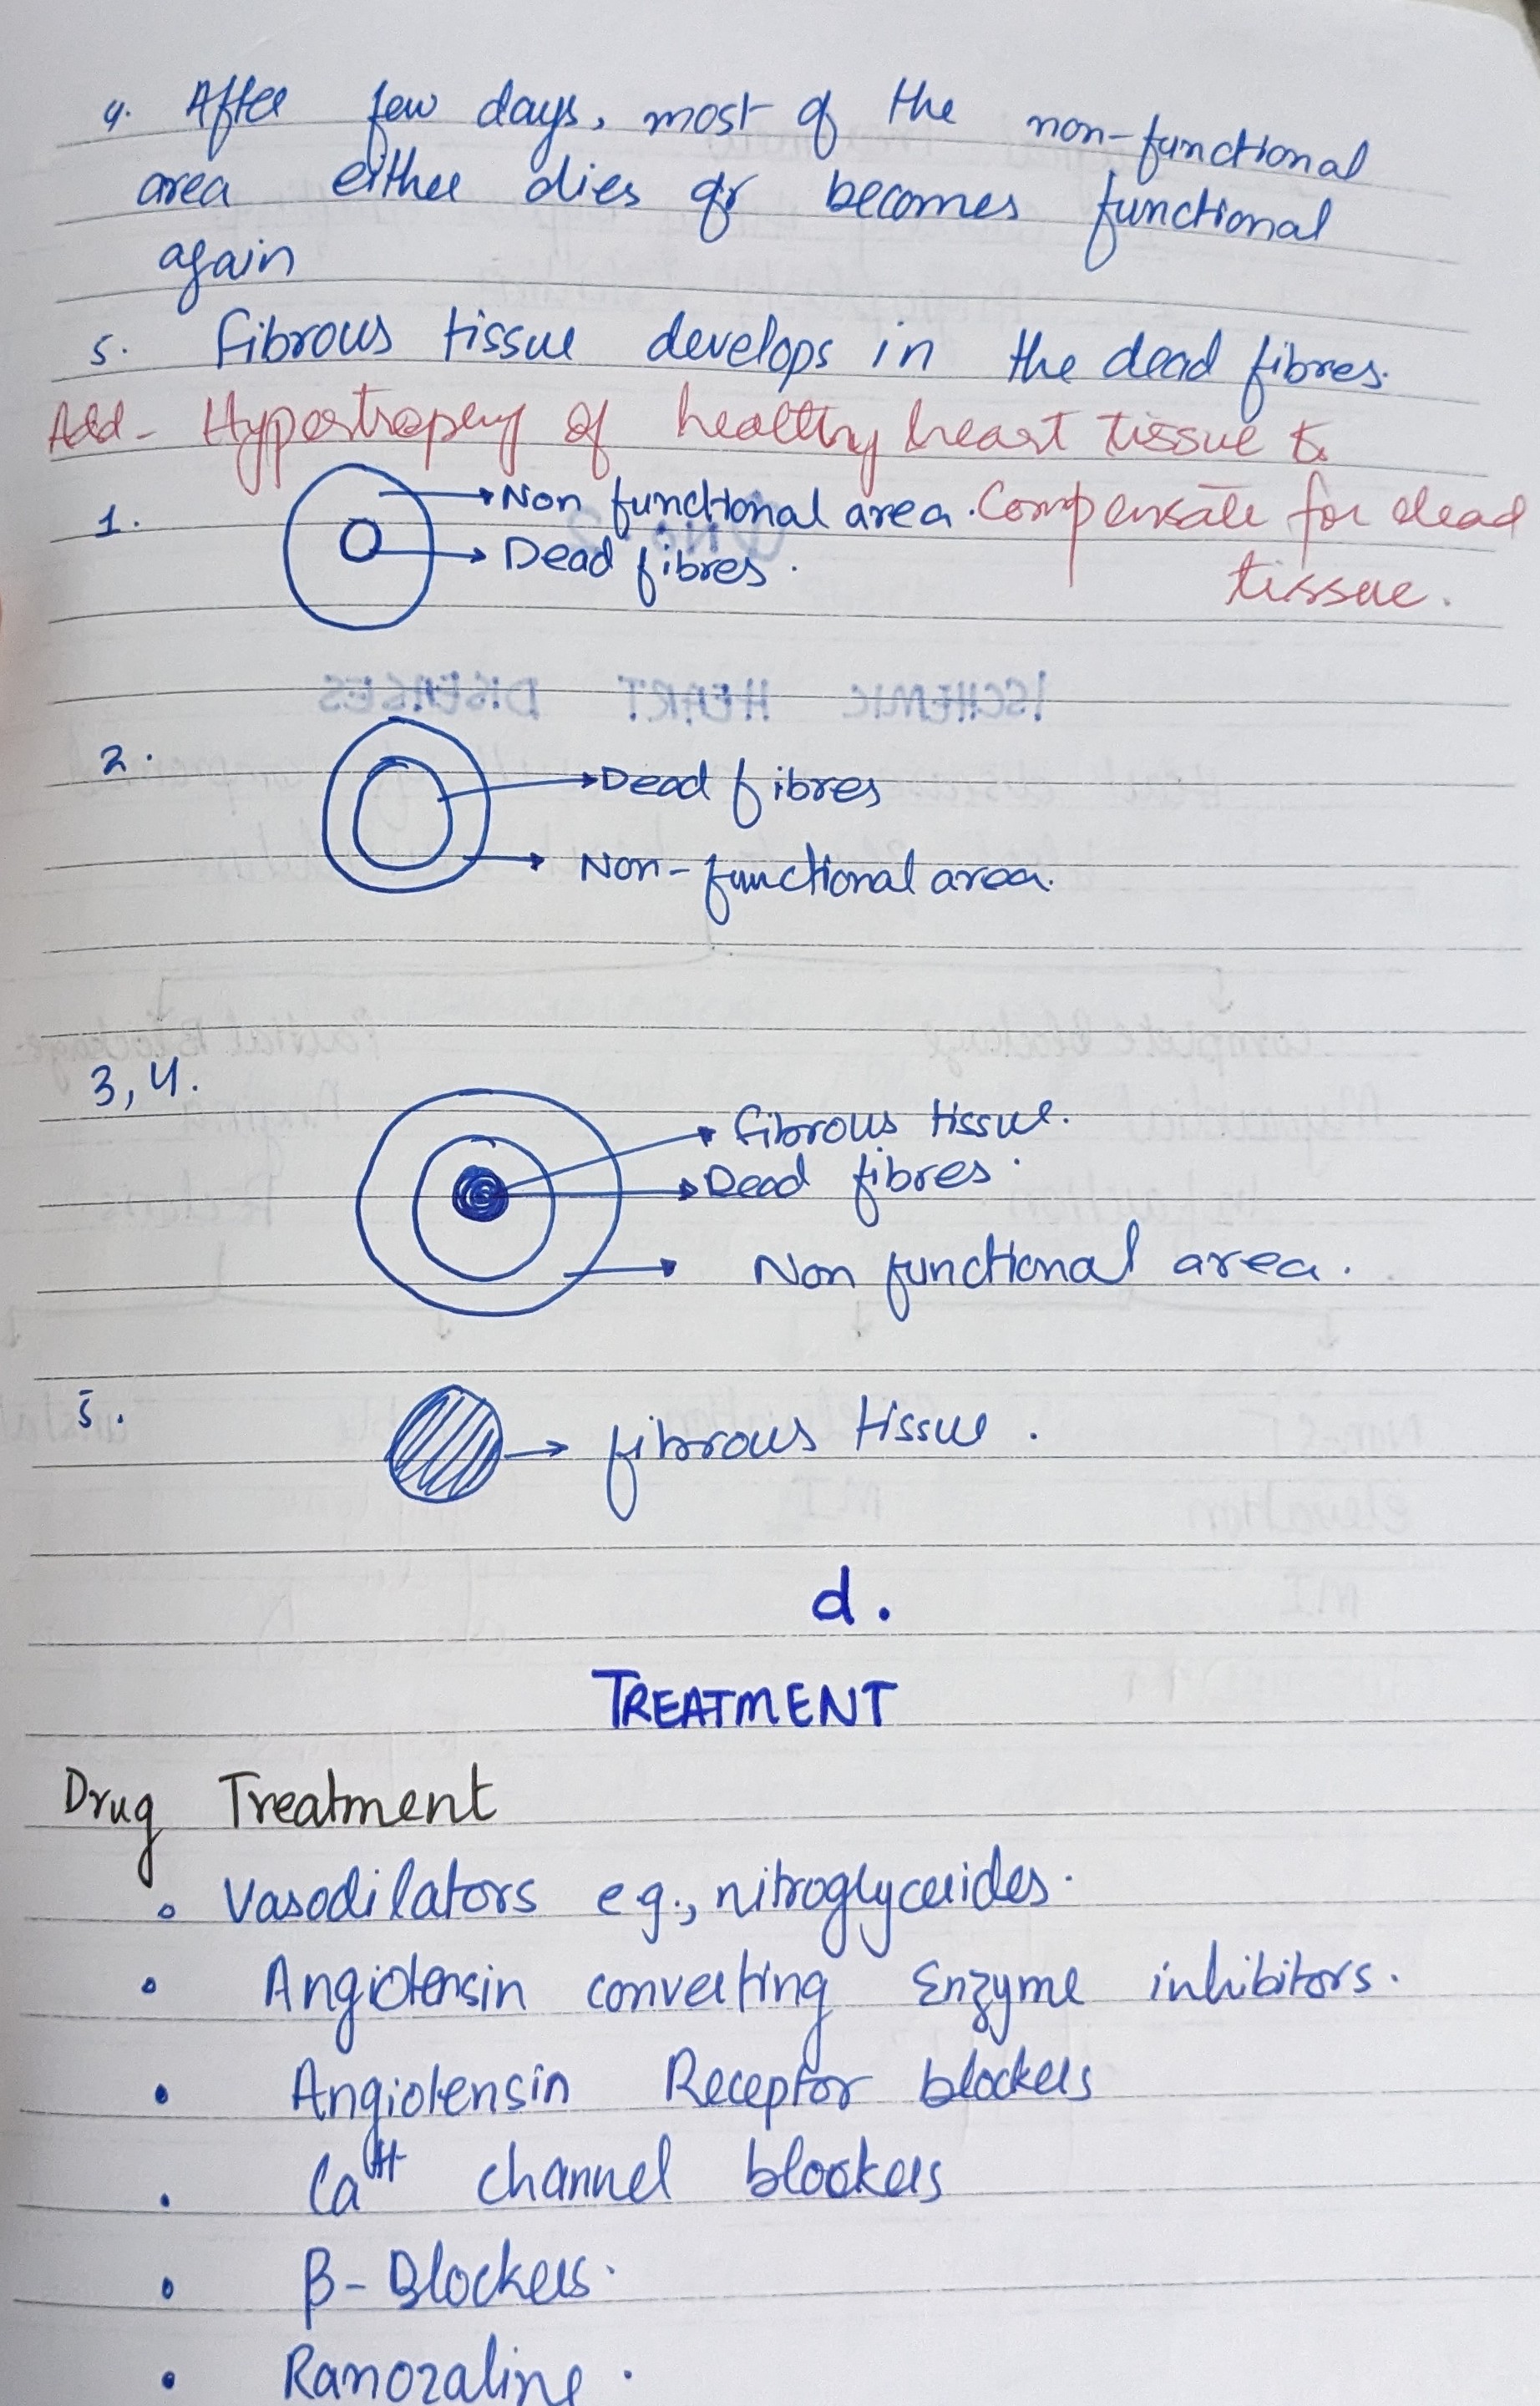 4. After few days, most of the non-functional
area either dies or becomes functional
again
5. Fibrous tissue develops in the dead fibres.
Add - Hypertropy of healthy heart tissue to
1. Non functional area. Compensate for dead
Dead fibres. tissue.
2. Dead fibres
Non-functional area.
3,4.
fibrous tissue.
Dead fibres.
Non functional area.
5. fibrous tissue.
d.
TREATMENT
Drug Treatment
• Vasodilators e.g., nitroglycerides.
• Angiotensin converting Enzyme inhibitors.
• Angiotensin Receptor blockers
• Ca++ channel blockers
• β-Blockers.
• Ranozaline.